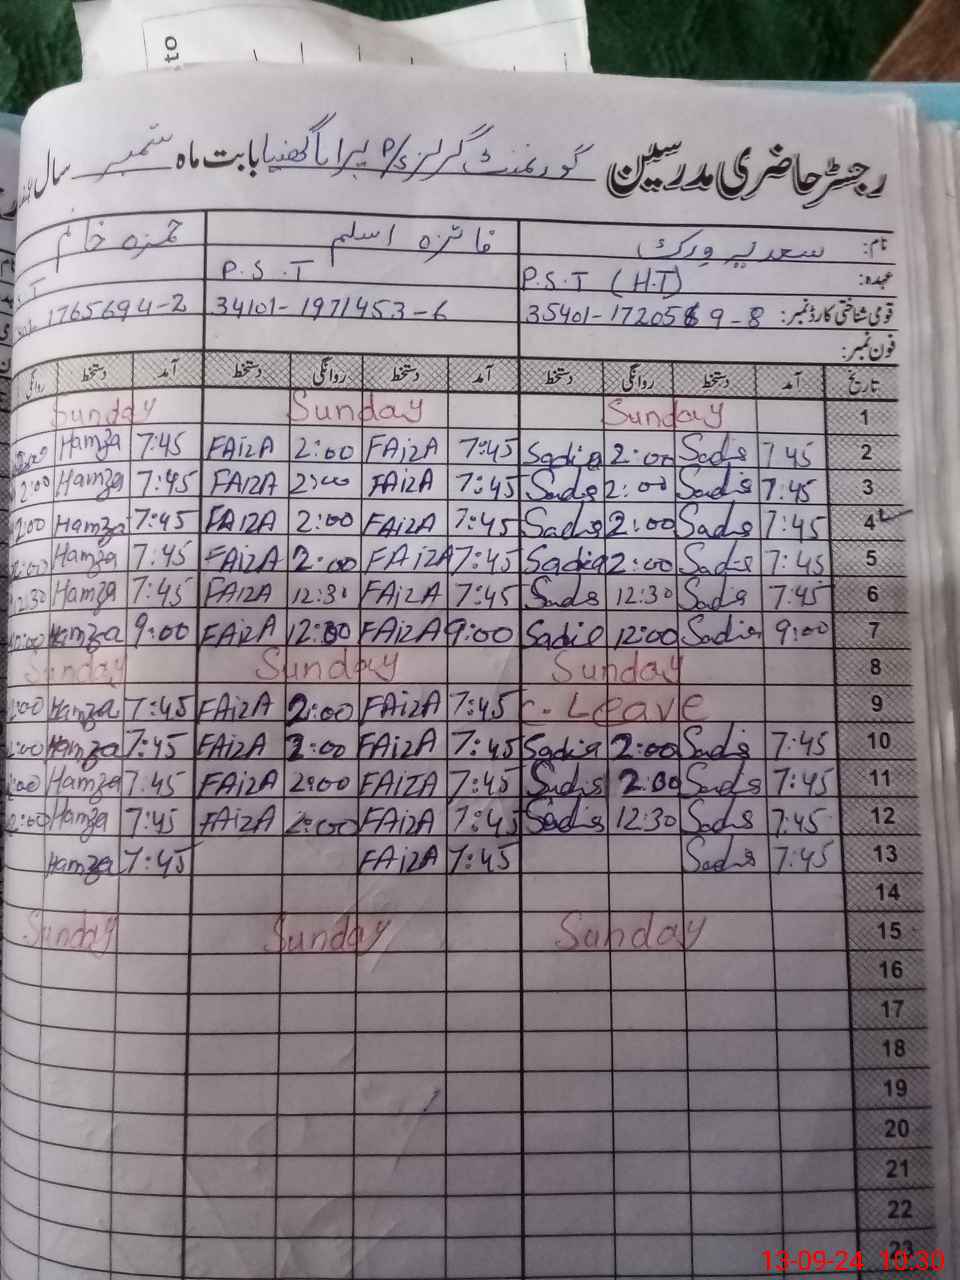 to
رجسٹر حاضری مدرسین گورنمنٹ گرلز P/S بابت ماہ ستمبر سال
نام: سعدیہ ورک فائزہ اسلم حمزہ خانم
عہدہ: P.S.T (H.T) P.S.T S.T
قومی شناختی کارڈ نمبر: 34101-1971453-6 1765694-2
فون نمبر:
تاریخ آمد دستخط روانگی دستخط آمد دستخط روانگی دستخط آمد دستخط روانگی
1 Sunday Sunday Sunday
2 7:45 Sadia 2:00 Sadia 7:45 FAizA 2:00 FAizA 7:45 Hamza 2:00
3 7:45 Sadia 2:00 Sadia 7:45 FAizA 2:00 FAizA 7:45 Hamza 2:00
4 7:45 Sadia 2:00 Sadia 7:45 FAizA 2:00 FAizA 7:45 Hamza 2:00
5 7:45 Sadia 2:00 Sadia 7:45 FAizA 2:00 FAizA 7:45 Hamza 2:00
6 7:45 Sadia 12:30 Sadia 7:45 FAizA 12:30 FAizA 7:45 Hamza 12:30
7 9:00 Sadia 12:00 Sadia 9:00 FAizA 12:00 FAizA 9:00 Hamza 12:00
8 Sunday Sunday Sunday
9 C. Leave 7:45 FAizA 2:00 FAizA 7:45 Hamza 2:00
10 7:45 Sadia 2:00 Sadia 7:45 FAizA 2:00 FAizA 7:45 Hamza 2:00
11 7:45 Sadia 2:00 Sadia 7:45 FAIZA 2:00 FAizA 7:45 Hamza 2:00
12 7:45 Sadia 12:30 Sadia 7:45 FAizA 2:00 FAizA 7:45 Hamza 2:00
13 7:45 Sadia 7:45 FAizA 7:45 Hamza
14
15 Sunday Sunday Sunday
16
17
18
19
20
21
22
23
13-09-24 10:30